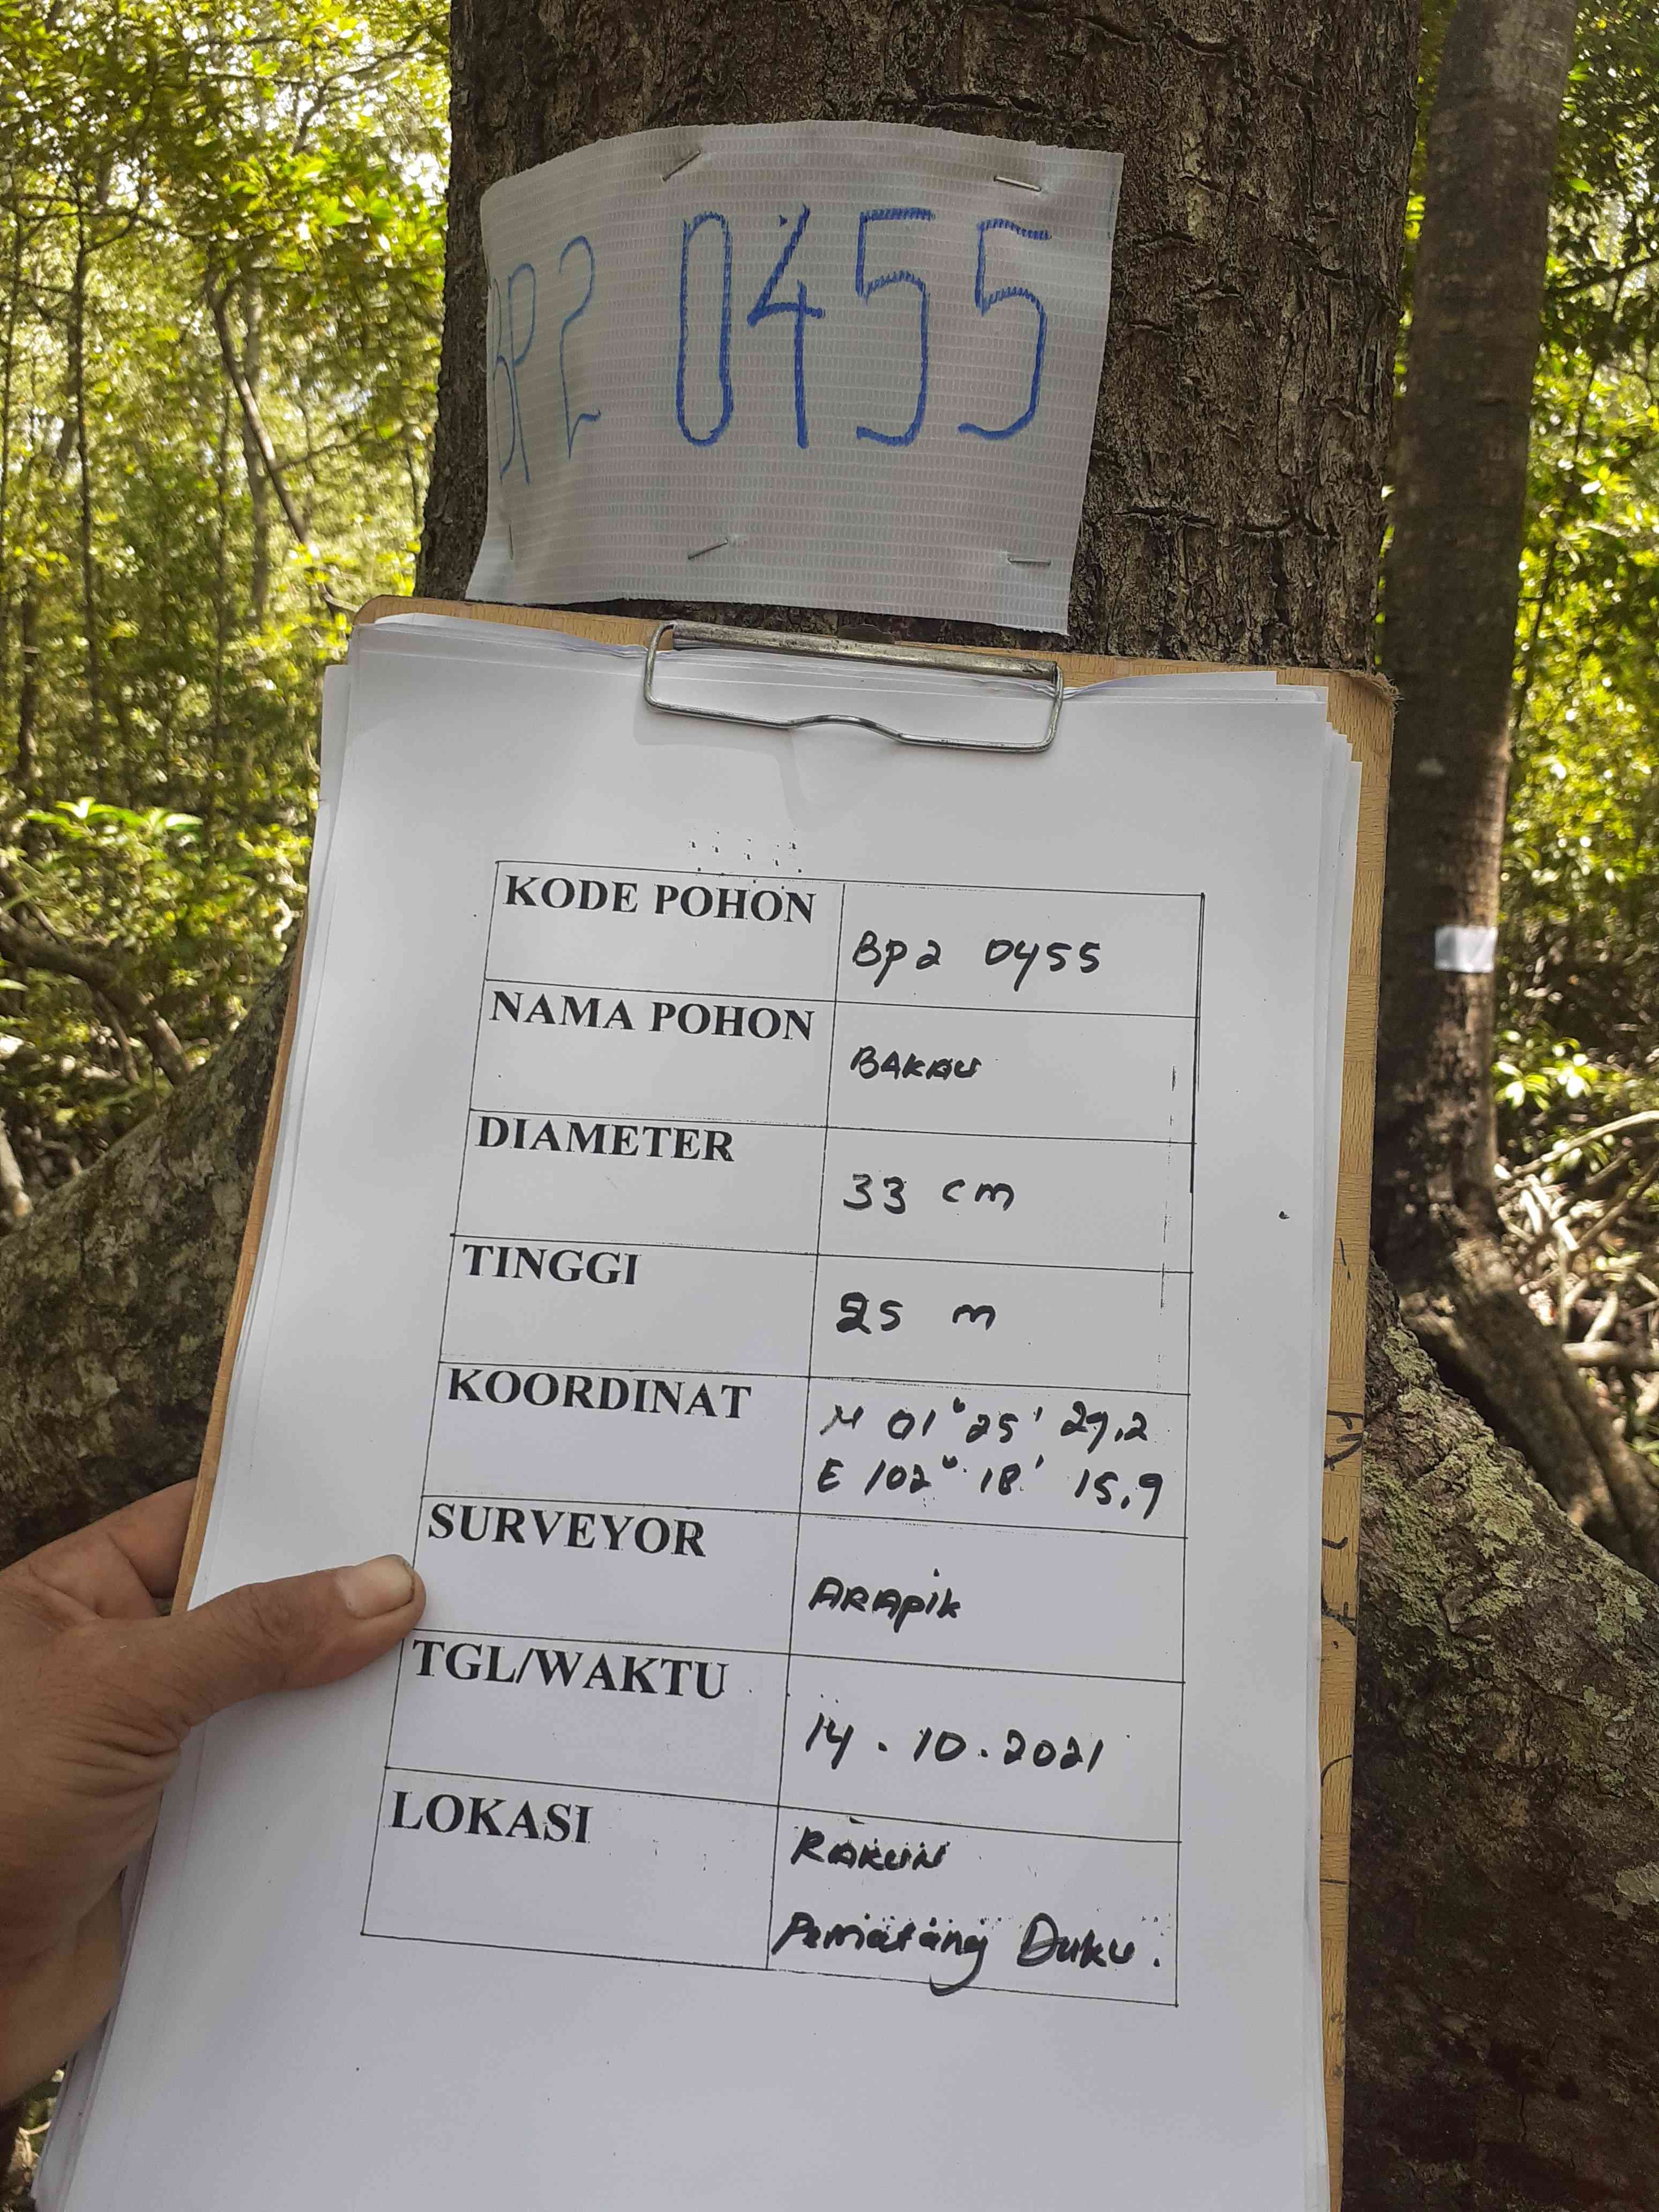 BP2 0455
KODE POHON
Bp2 0455
NAMA POHON
BAKAU
DIAMETER
33 cm
TINGGI
25 m
KOORDINAT
N 01° 25' 29,2
E 102° 18' 15,9
SURVEYOR
ARApik
TGL/WAKTU
14 . 10 . 2021
LOKASI
RAKUN
Pematang Duku.